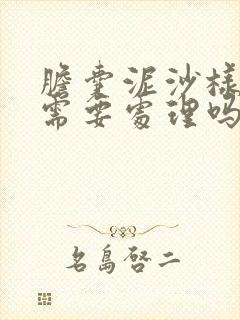 膽囊泥沙樣
需要處理嗎
名島啓二